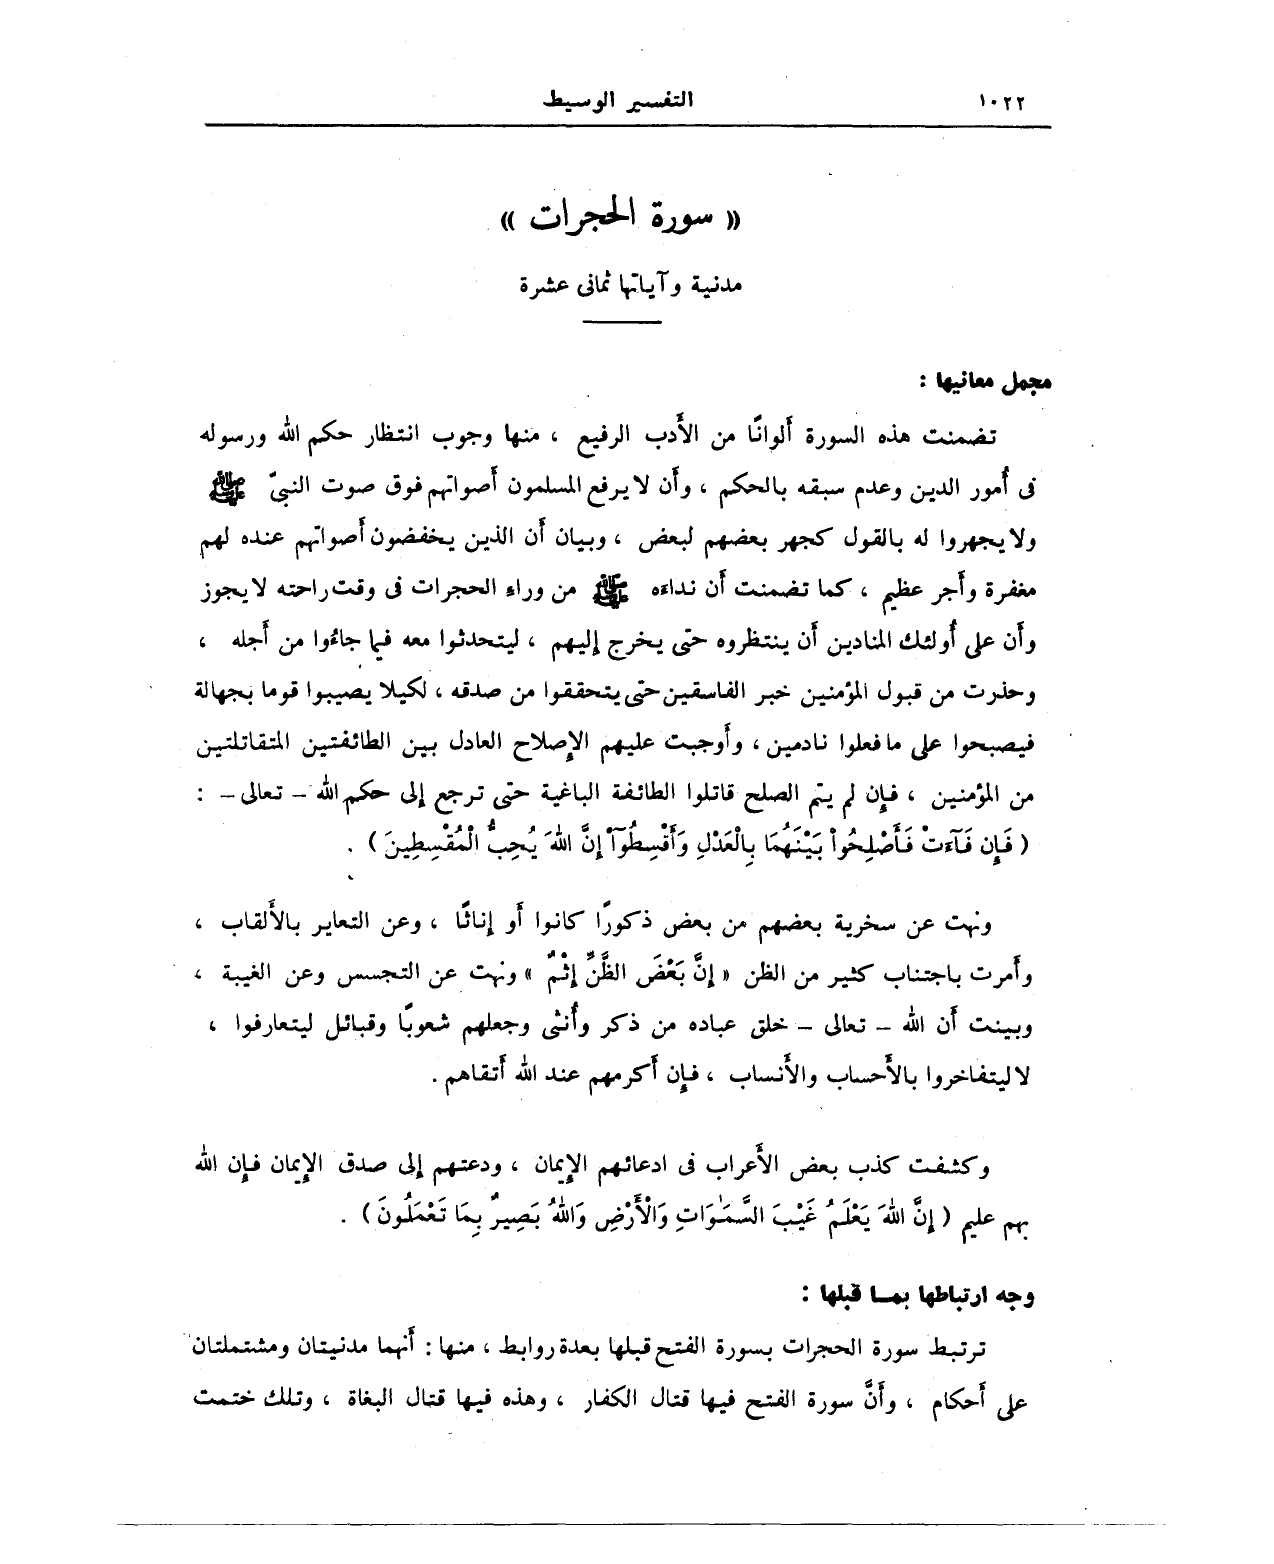 ١٠٢٢ التفسير الوسيط
« سورة الحجرات »
مدنية وآياتها ثمانى عشرة
مجمل معانيها :
تضمنت هذه السورة ألوانًا من الأدب الرفيع ، منها وجوب انتظار حكم الله ورسوله
فى أُمور الدين وعدم سبقه بالحكم ، وأن لا يرفع المسلمون أصواتهم فوق صوت النبىّ ﷺ
ولا يجهروا له بالقول كجهر بعضهم لبعض ، وبيان أن الذين يخفضون أصواتهم عنده لهم
مغفرة وأجر عظيم ، كما تضمنت أن نداءه ﷺ من وراء الحجرات فى وقت راحته لا يجوز
وأن على أُولئك المنادين أن ينتظروه حتى يخرج إليهم ، ليتحدثوا معه فيما جاءُوا من أجله ،
وحذرت من قبول المؤمنين خبر الفاسقين حتى يتحققوا من صدقه ، لكيلا يصيبوا قوما بجهالة
فيصبحوا على ما فعلوا نادمين ، وأوجبت عليهم الإصلاح العادل بين الطائفتين المتقاتلتين
من المؤمنين ، فإن لم يتم الصلح قاتلوا الطائفة الباغية حتى ترجع إلى حكم الله – تعالى – :
( فَإِن فَآءَتْ فَأَصْلِحُواْ بَيْنَهُمَا بِالْعَدْلِ وَأَقْسِطُوٓاْ إِنَّ اللهَ يُحِبُّ الْمُقْسِطِينَ ) .
ونهت عن سخرية بعضهم من بعض ذكورًا كانوا أو إناثًا ، وعن التعاير بالألقاب ،
وأمرت باجتناب كثير من الظن « إِنَّ بَعْضَ الظَّنِّ إِثْمٌ » ونهت عن التجسس وعن الغيبة ،
وبينت أن الله – تعالى – خلق عباده من ذكر وأُنثى وجعلهم شعوبًا وقبائل ليتعارفوا ،
لا ليتفاخروا بالأحساب والأنساب ، فإن أكرمهم عند الله أتقاهم .
وكشفت كذب بعض الأعراب فى ادعائهم الإيمان ، ودعتهم إلى صدق الإيمان فإن الله
بهم عليم ( إِنَّ اللهَ يَعْلَمُ غَيْبَ السَّمَٰوَاتِ وَالْأَرْضِ وَاللهُ بَصِيرٌ بِمَا تَعْمَلُونَ ) .
وجه ارتباطها بمـا قبلها :
ترتبط سورة الحجرات بسورة الفتح قبلها بعدة روابط ، منها : أنهما مدنيتان ومشتملتان
على أحكام ، وأنَّ سورة الفتح فيها قتال الكفار ، وهذه فيها قتال البغاة ، وتلك ختمت